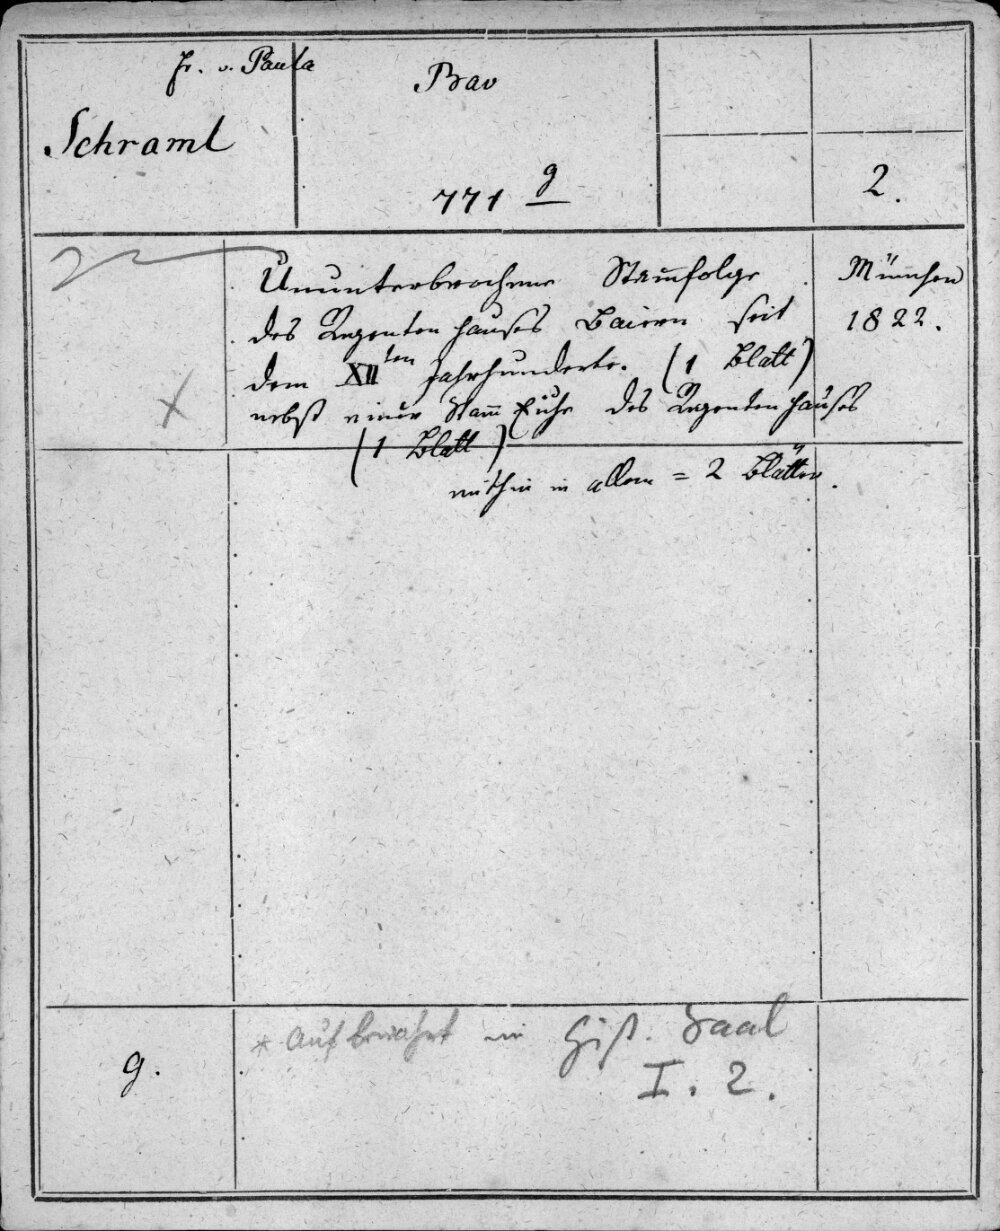 Fr. v. Paula
Schraml
Bav
771 g
2.
Ununterbrochene Stam̅folge
des Regenten hauses Baiern seit
dem XII ten Jahrhunderte. (1 Blatt)
nebst einer Stam̅ Eiche des Regenten hauses
(1 Blatt)
mithin in allem = 2 Blätter.
München
1822.
g.
* Aufbewahrt im Hist. Saal
I. 2.